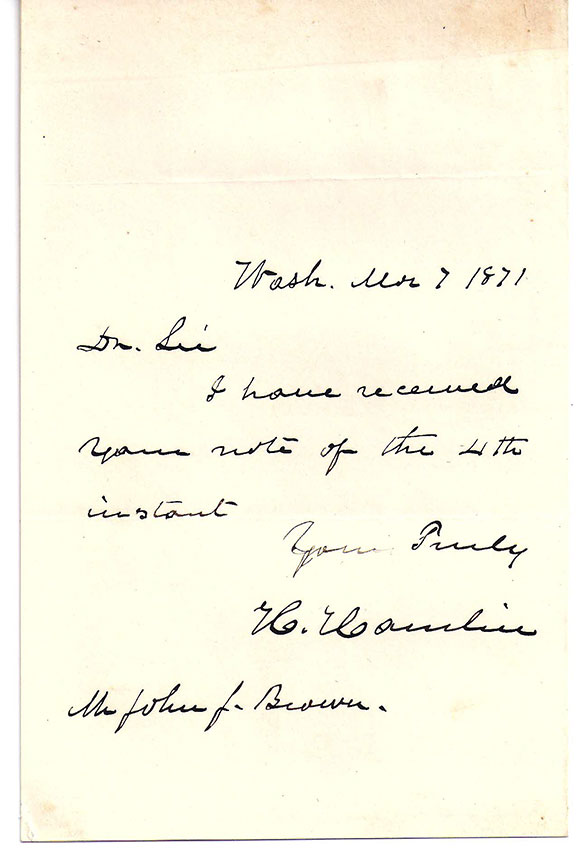 Wash. Mar 7 1871
Dr. Sir
I have received
your note of the 4th
instant
Yours Truly
H. Hamlin
Mr John J. Brown.